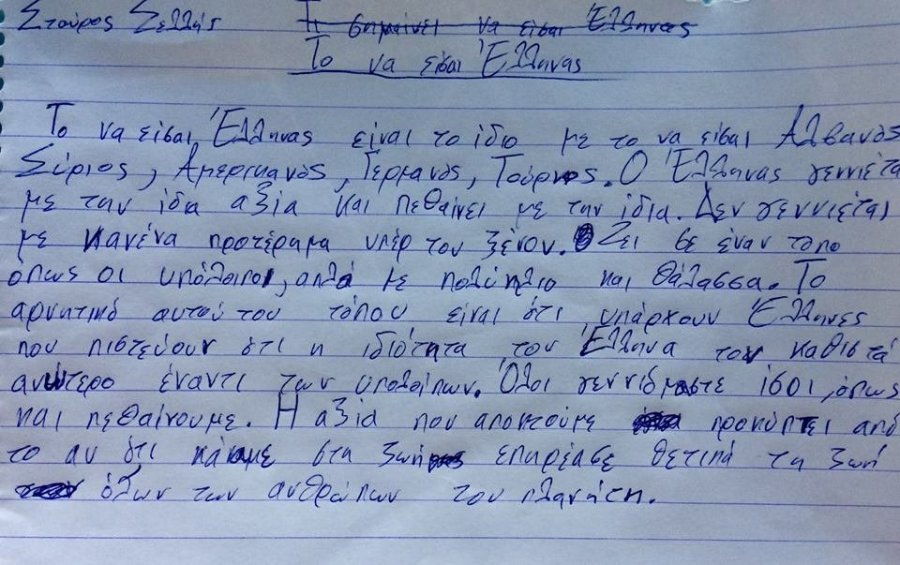 Σταύρος Σελλής Τι σημαίνει να είσαι Έλληνας
Το να είσαι Έλληνας
Το να είσαι Έλληνας είναι το ίδιο με το να είσαι Αλβανός
Σύριος, Αμερικανός, Γερμανός, Τούρκος. Ο Έλληνας γεννιέται
με την ίδια αξία και πεθαίνει με την ίδια. Δεν γεννιέται
με κανένα προτέραμα υπέρ του ξένου. Ζει σε έναν τόπο
όπως οι υπόλοιποι, απλά με πολύ ήλιο και θάλασσα. Το
αρνητικό αυτού του τόπου είναι ότι υπάρχουν Έλληνες
που πιστεύουν ότι η ιδιότητα του Έλληνα τον καθιστά
ανώτερο έναντι των υπολοίπων. Όλοι γεννιόμαστε ίσοι, όπως
και πεθαίνουμε. Η αξία που αποκτούμε προκύπτει από
το αν ότι κάναμε στη ζωή επηρέασε θετικά τη ζωή
όλων των ανθρώπων του πλανήτη.